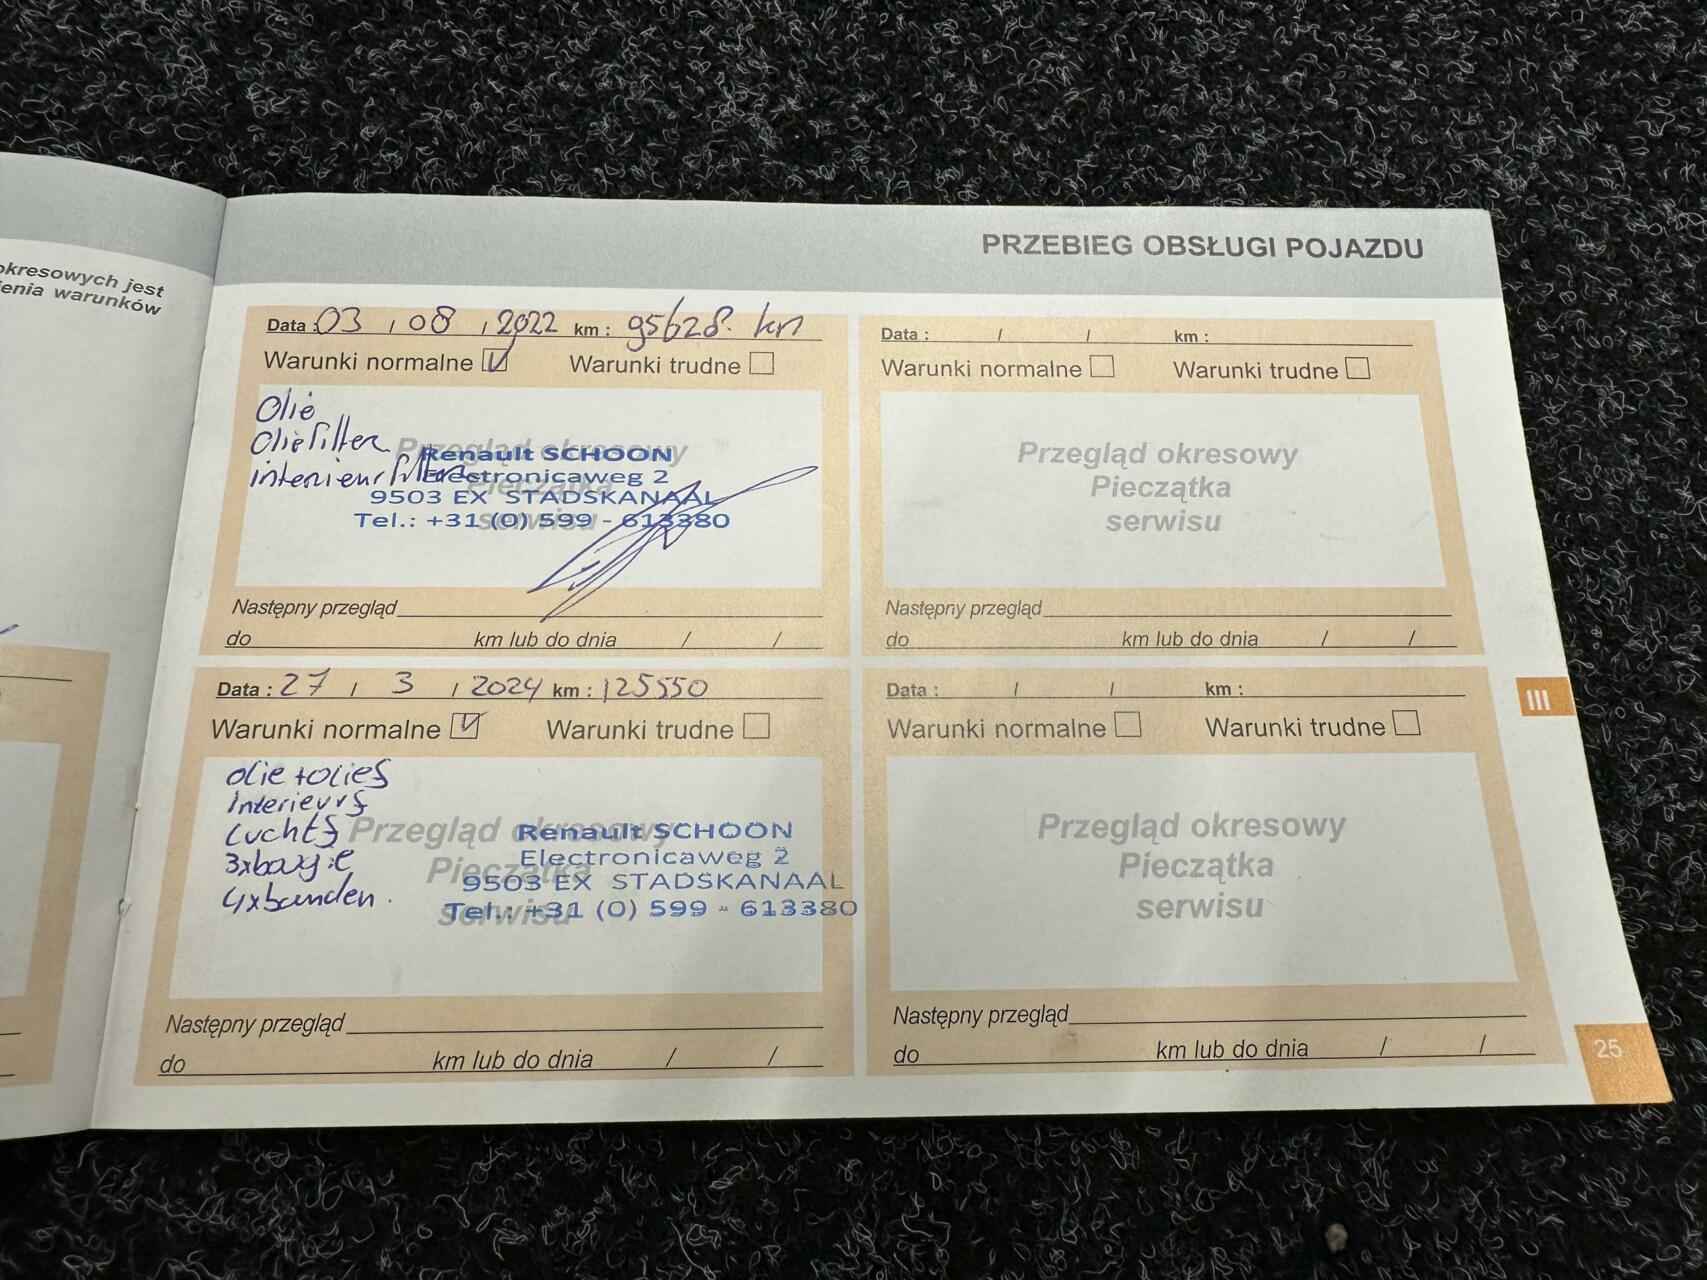 okresowych jest
enia warunków
PRZEBIEG OBSŁUGI POJAZDU
Data : 03 / 08 / 2022 km : 95628. km
Warunki normalne Warunki trudne
Olie
Oliefilter
interieurfilter
Przegląd okresowy
Pieczątka
serwisu
Renault SCHOON
Electronicaweg 2
9503 EX STADSKANAAL
Tel.: +31 (0) 599 - 613380
Następny przegląd
do km lub do dnia / /
Data : / / km :
Warunki normalne Warunki trudne
Przegląd okresowy
Pieczątka
serwisu
Następny przegląd
do km lub do dnia / /
Data : 27 / 3 / 2024 km : 125550
Warunki normalne Warunki trudne
olie + olief
Interieurf
Luchtf
3xbougie
4xbanden.
Przegląd okresowy
Pieczątka
serwisu
Renault SCHOON
Electronicaweg 2
9503 EX STADSKANAAL
Tel.: +31 (0) 599 - 613380
Następny przegląd
do km lub do dnia / /
Data : / / km :
Warunki normalne Warunki trudne
Przegląd okresowy
Pieczątka
serwisu
Następny przegląd
do km lub do dnia / /
III
25